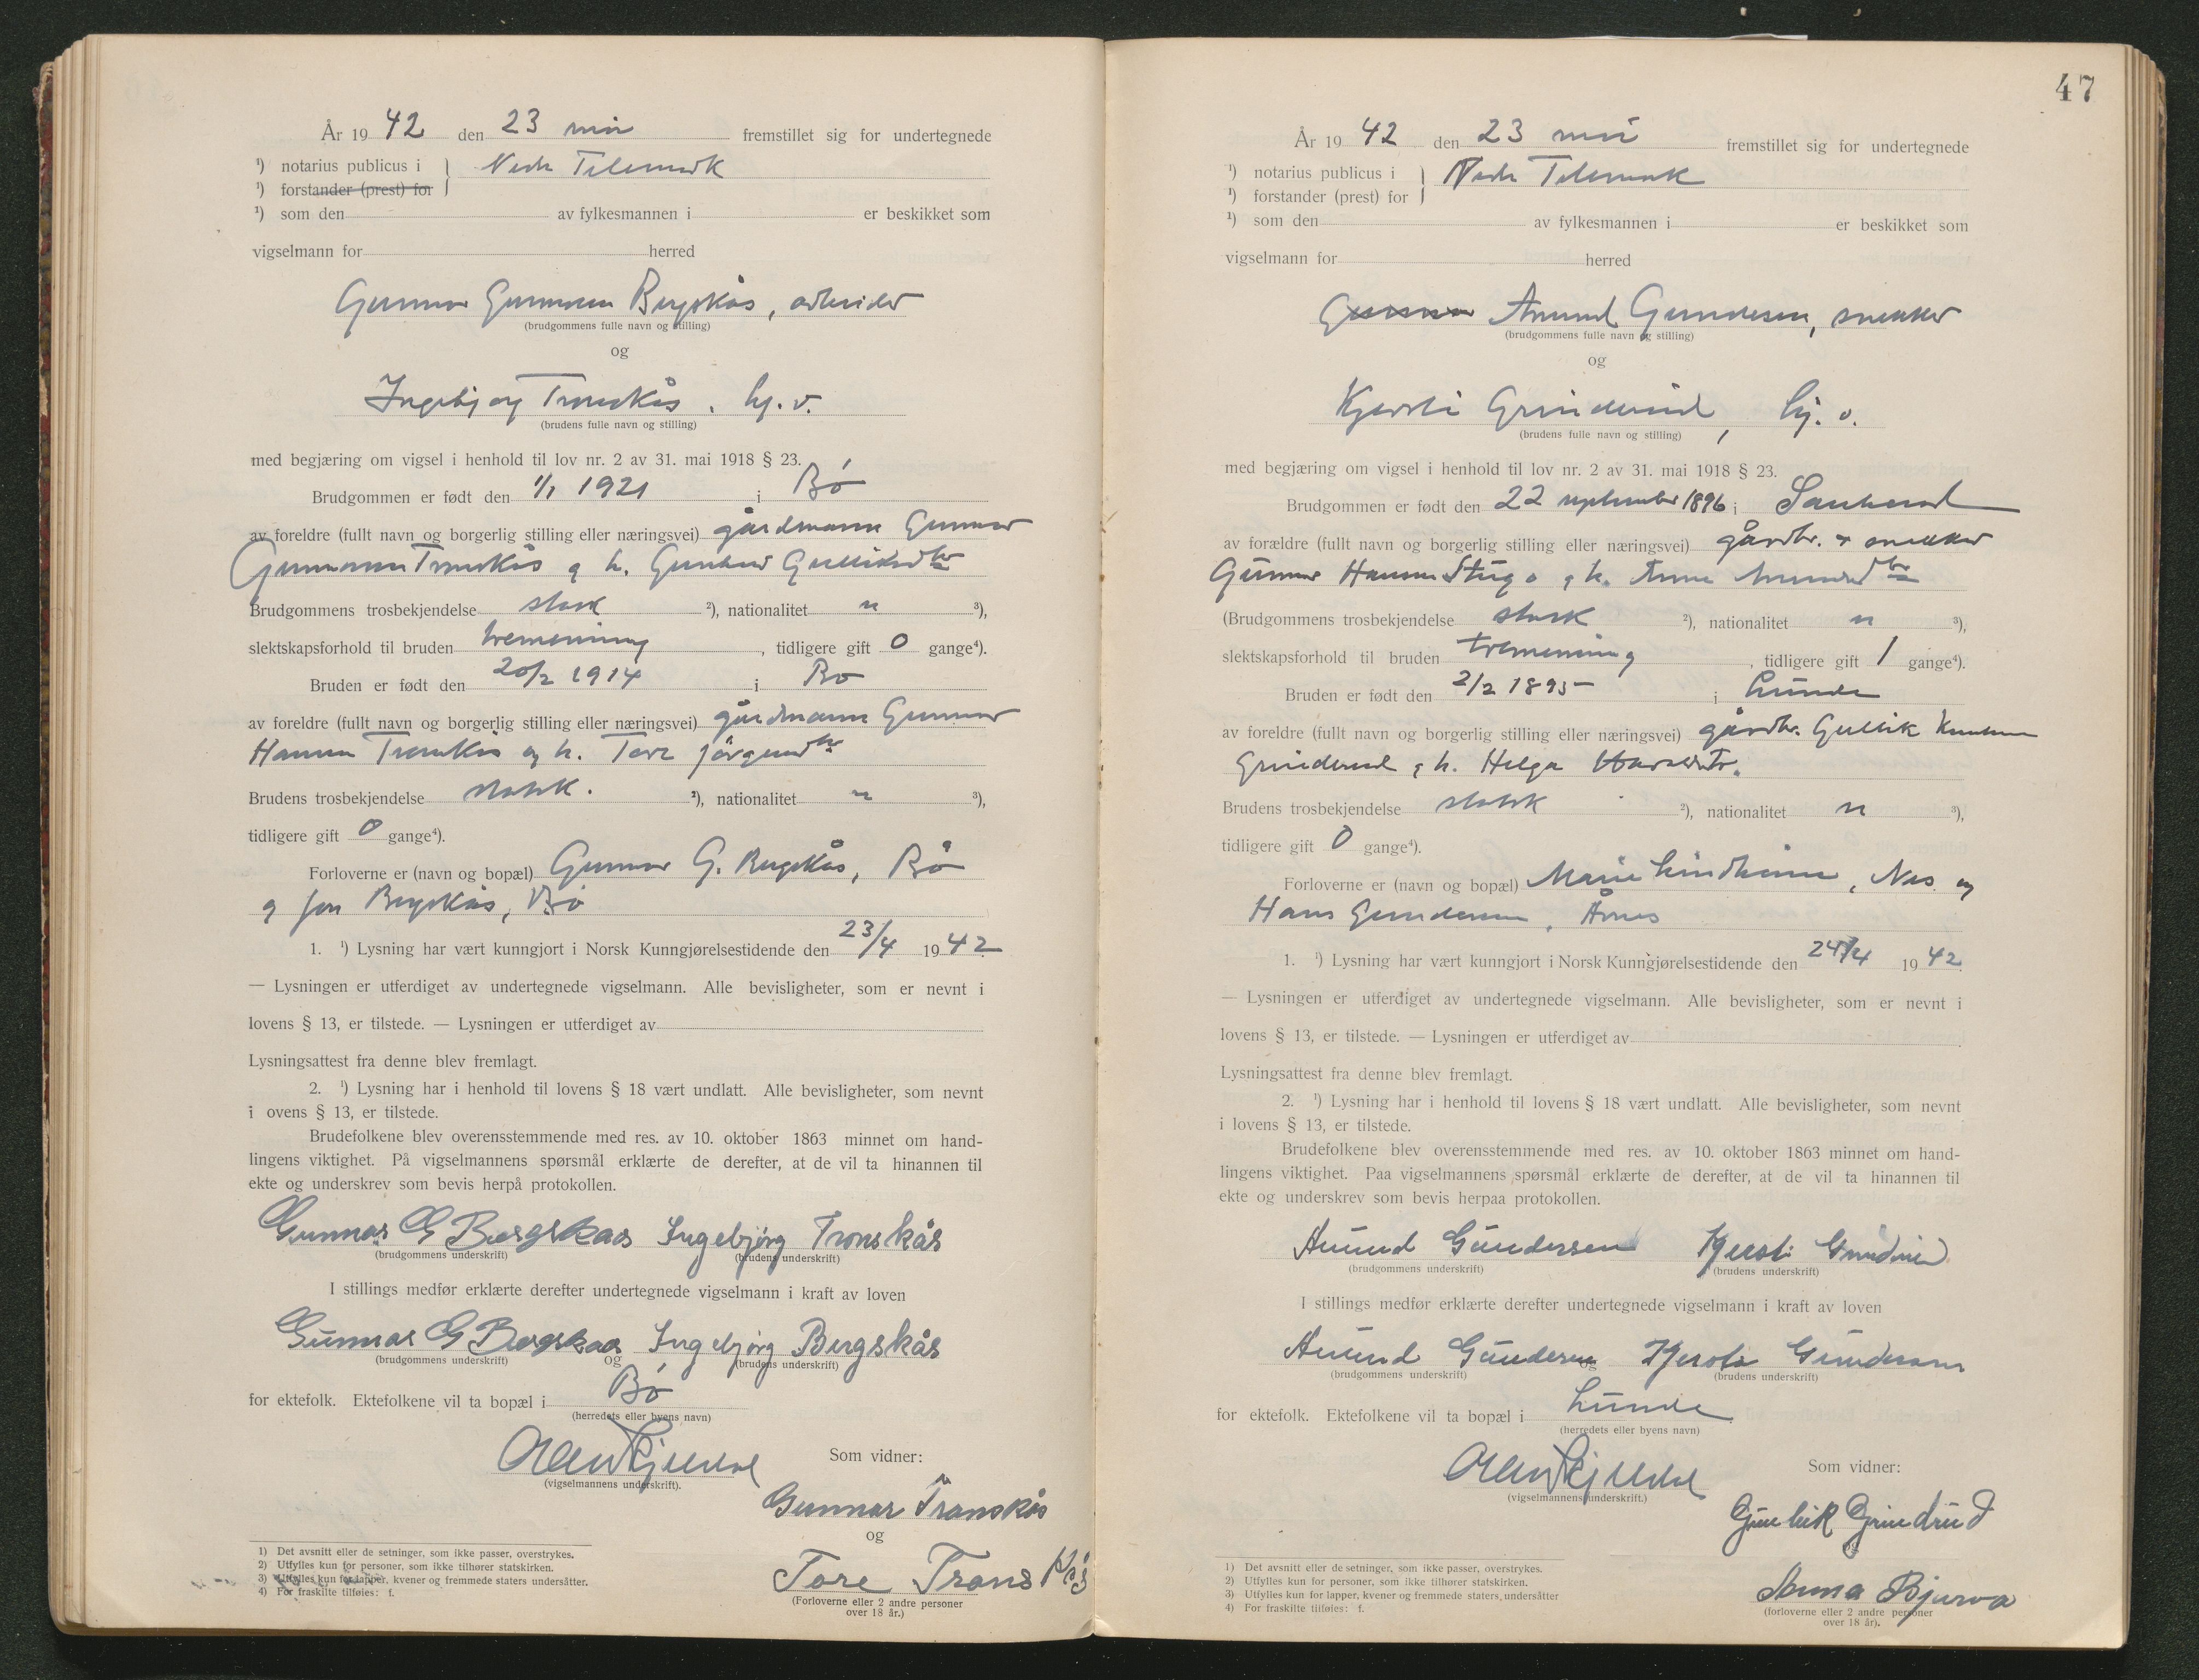 År 1942 den 23 mai fremstillet sig for undertegnede
¹) notarius publicus i } Nedre Telemark
¹) forstander (prest) for
¹) som den av fylkesmannen i er beskikket som
vigselmann for herred
Gunnar Gunnarsen Bergskås, arbeider
(brudgommens fulle navn og stilling)
og
Ingebjørg Tronskås, hj. v.
(brudens fulle navn og stilling)
med begjæring om vigsel i henhold til lov nr. 2 av 31. mai 1918 § 23.
Brudgommen er født den 1/1 1921 i Bø
av foreldre (fullt navn og borgerlig stilling eller næringsvei) gårdmann Gunnar
Gunnarsen Tronskås og h. Gunhild Gulliksdtr
Brudgommens trosbekjendelse statsk ²), nationalitet n ³),
slektskapsforhold til bruden tremenning, tidligere gift 0 gange⁴).
Bruden er født den 20/2 1914 i Bø
av foreldre (fullt navn og borgerlig stilling eller næringsvei) gårdmann Gunnar
Hansen Tronskås og h. Tore Jørgensdtr
Brudens trosbekjendelse statsk. ²), nationalitet n ³),
tidligere gift 0 gange⁴).
Forloverne er (navn og bopæl) Gunnar G. Bergskås, Bø
og Jon Bergskås, Bø
1. ¹) Lysning har vært kunngjort i Norsk Kunngjørelsestidende den 23/4 1942
— Lysningen er utferdiget av undertegnede vigselmann. Alle bevisligheter, som er nevnt i
lovens § 13, er tilstede. — Lysningen er utferdiget av
Lysningsattest fra denne blev fremlagt.
2. ¹) Lysning har i henhold til lovens § 18 vært undlatt. Alle bevisligheter, som nevnt
i ovens § 13, er tilstede.
Brudefolkene blev overensstemmende med res. av 10. oktober 1863 minnet om hand-
lingens viktighet. På vigselmannens spørsmål erklærte de derefter, at de vil ta hinannen til
ekte og underskrev som bevis herpå protokollen.
Gunnar G Bergskaas Ingebjørg Tronskås
(brudgommens underskrift) (brudens underskrift)
I stillings medfør erklærte derefter undertegnede vigselmann i kraft av loven
Gunnar G Bergskaas og Ingebjørg Bergskås
(brudgommens underskrift) (brudens underskrift)
for ektefolk. Ektefolkene vil ta bopæl i Bø
(herredets eller byens navn)
Som vidner:
(vigselmannens underskrift).
Gunnar Tronskås
og
Tore Tronskås
(Forloverne eller 2 andre personer
over 18 år.)
1) Det avsnitt eller de setninger, som ikke passer, overstrykes.
2) Utfylles kun for personer, som ikke tilhører statskirken.
3) Utfylles kun for lapper, kvener og fremmede staters undersåtter.
4) For fraskilte tilføies: f.
47
År 1942 den 23 mai fremstillet sig for undertegnede
¹) notarius publicus i } Nedre Telemark
¹) forstander (prest) for
¹) som den av fylkesmannen i er beskikket som
vigselmann for herred
Gunnar Amund Gundersen, snekker
(brudgommens fulle navn og stilling)
og
Kjersti Grinderud, hj. v.
(brudens fulle navn og stilling)
med begjæring om vigsel i henhold til lov nr. 2 av 31. mai 1918 § 23.
Brudgommen er født den 22 september 1896 i Sauherad
av forældre (fullt navn og borgerlig stilling eller næringsvei) gårdbr. & snekker
Gunnar Hansen Stugo og h. Anne Amundsdtr
(Brudgommens trosbekjendelse statsk ²), nationalitet n ³),
slektskapsforhold til bruden tremenning, tidligere gift 1 gange⁴).
Bruden er født den 2/2 1895 i Lunde
av foreldre (fullt navn og borgerlig stilling eller næringsvei) gårdbr. Gullik Knutsen
Grinderud og h. Helga Halvorsdtr.
Brudens trosbekjendelse statsk ²), nationalitet n ³),
tidligere gift 0 gange⁴).
Forloverne er (navn og bopæl) Marie Lindheim, Nes og
Hans Gundersen, Årnes
1. ¹) Lysning har vært kunngjort i Norsk Kunngjørelsestidende den 24/4 1942.
— Lysningen er utferdiget av undertegnede vigselmann. Alle bevisligheter, som er nevnt i
lovens § 13, er tilstede. — Lysningen er utferdiget av
Lysningsattest fra denne blev fremlagt.
2. ¹) Lysning har i henhold til lovens § 18 vært undlatt. Alle bevisligheter, som nevnt
i lovens § 13, er tilstede.
Brudefolkene blev overensstemmende med res. av 10. oktober 1863 minnet om hand-
lingens viktighet. Paa vigselmannens spørsmål erklærte de derefter, at de vil ta hinannen til
ekte og underskrev som bevis herpaa protokollen.
Amund Gundersen Kjersti Grinderud
(brudgommens underskrift) (brudens underskrift)
I stillings medfør erklærte derefter undertegnede vigselmann i kraft av loven
Amund Gundersen og Kjersti Gundersen
(brudgommens underskrift) (brudens underskrift)
for ektefolk. Ektefolkene vil ta bopæl i Lunde
(herredets eller byens navn)
Som vidner:
(vigselmannens underskrift.)
Gunleik Grindrud
og
Anna Bjurva
(forloverne eller 2 andre personer
over 18 år).
1) Det avsnitt eller de setninger, som ikke passer, overstrykes.
2) Utfylles kun for personer, som ikke tilhører statskirken.
3) Utfylles kun for lapper, kvener og fremmede staters, undersåtter
4) For fraskilte tilføies: f.